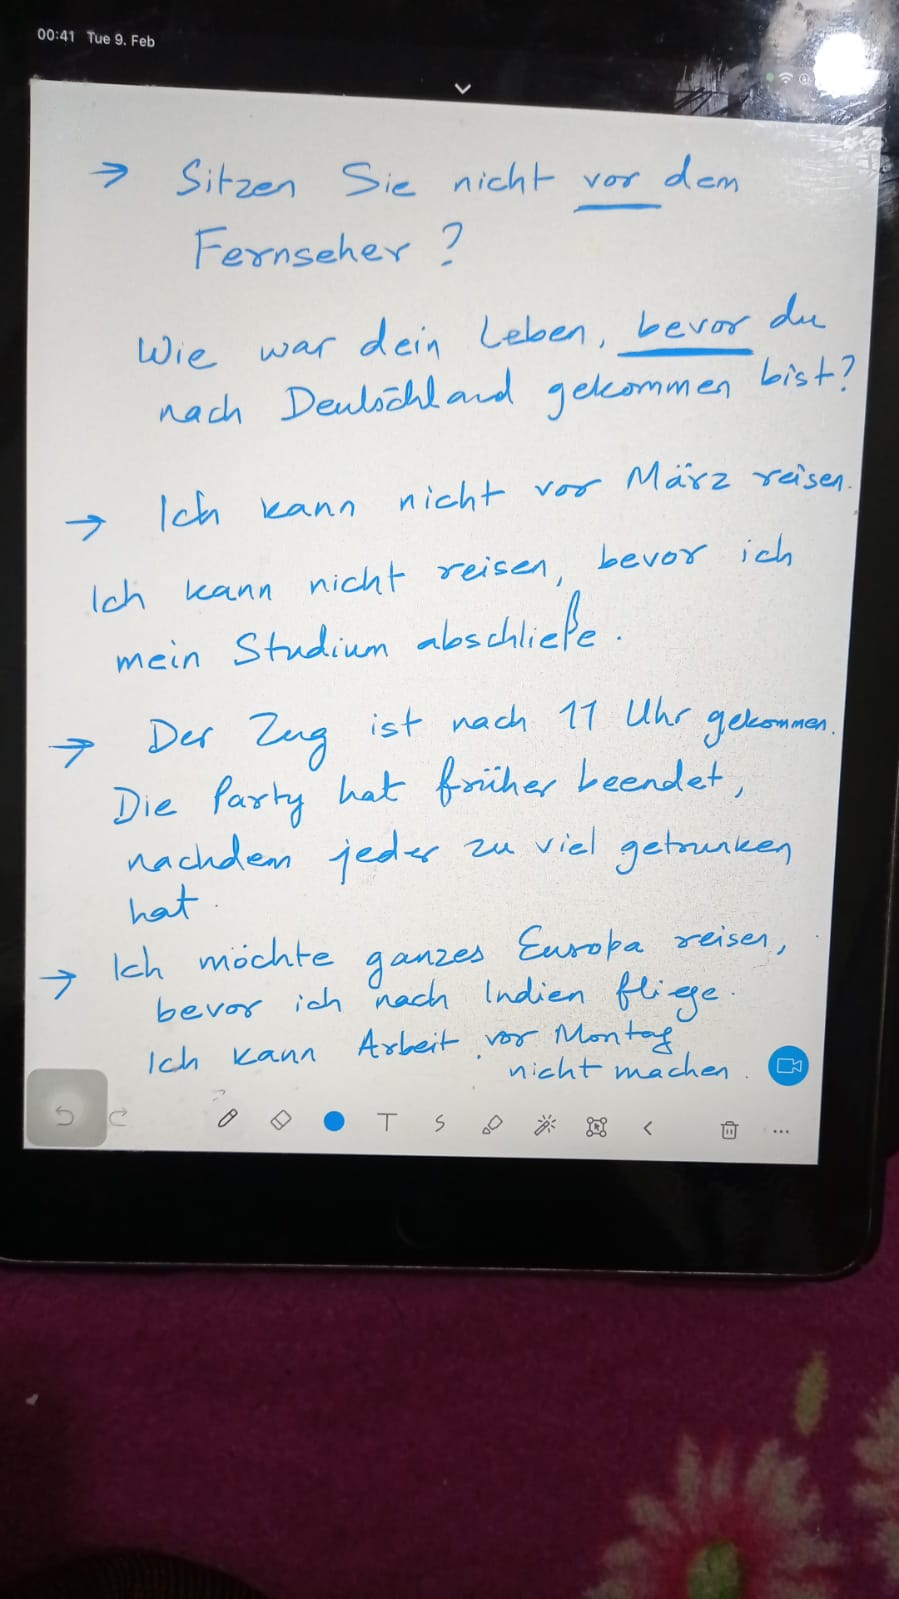 00:41 Tue 9. Feb
→ Sitzen Sie nicht vor dem
Fernseher ?
Wie war dein Leben, bevor du
nach Deutschland gekommen bist?
→ Ich kann nicht vor März reisen.
Ich kann nicht reisen, bevor ich
mein Studium abschließe.
→ Der Zug ist nach 11 Uhr gekommen.
Die Party hat früher beendet,
nachdem jeder zu viel getrunken
hat.
→ Ich möchte ganzes Europa reisen,
bevor ich nach Indien fliege.
Ich kann Arbeit vor Montag
nicht machen.
T